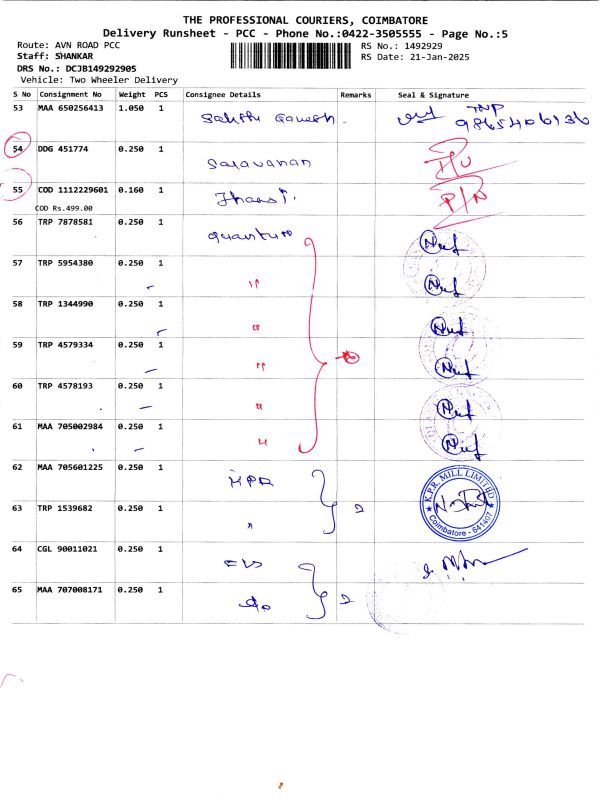 THE PROFESSIONAL COURIERS, COIMBATORE
Delivery Runsheet - PCC - Phone No.:0422-3505555 - Page No.:5
Route: AVN ROAD PCC
RS No.: 1492929
Staff: SHANKAR
RS Date: 21-Jan-2025
DRS No.: DCJB149292905
Vehicle: Two Wheeler Delivery
S No Consignment No Weight PCS Consignee Details Remarks Seal & Signature
53 MAA 650256413 1.050 1 Sakthi Ganesh. TNP
9865406136
54 DDG 451774 0.250 1 Saravanan
55 COD 1112229601 0.160 1 P/N
COD Rs.499.00
56 TRP 7878581 0.250 1 Quantum
57 TRP 5954380 0.250 1 "
58 TRP 1344990 0.250 1 "
59 TRP 4579334 0.250 1 "
60 TRP 4578193 0.250 1 "
61 MAA 705002984 0.250 1 "
62 MAA 705601225 0.250 1 KPR K.P.R. MILL LIMITED
63 TRP 1539682 0.250 1 " 2 Coimbatore - 641407
64 CGL 90011021 0.250 1
65 MAA 707008171 0.250 1 do 2